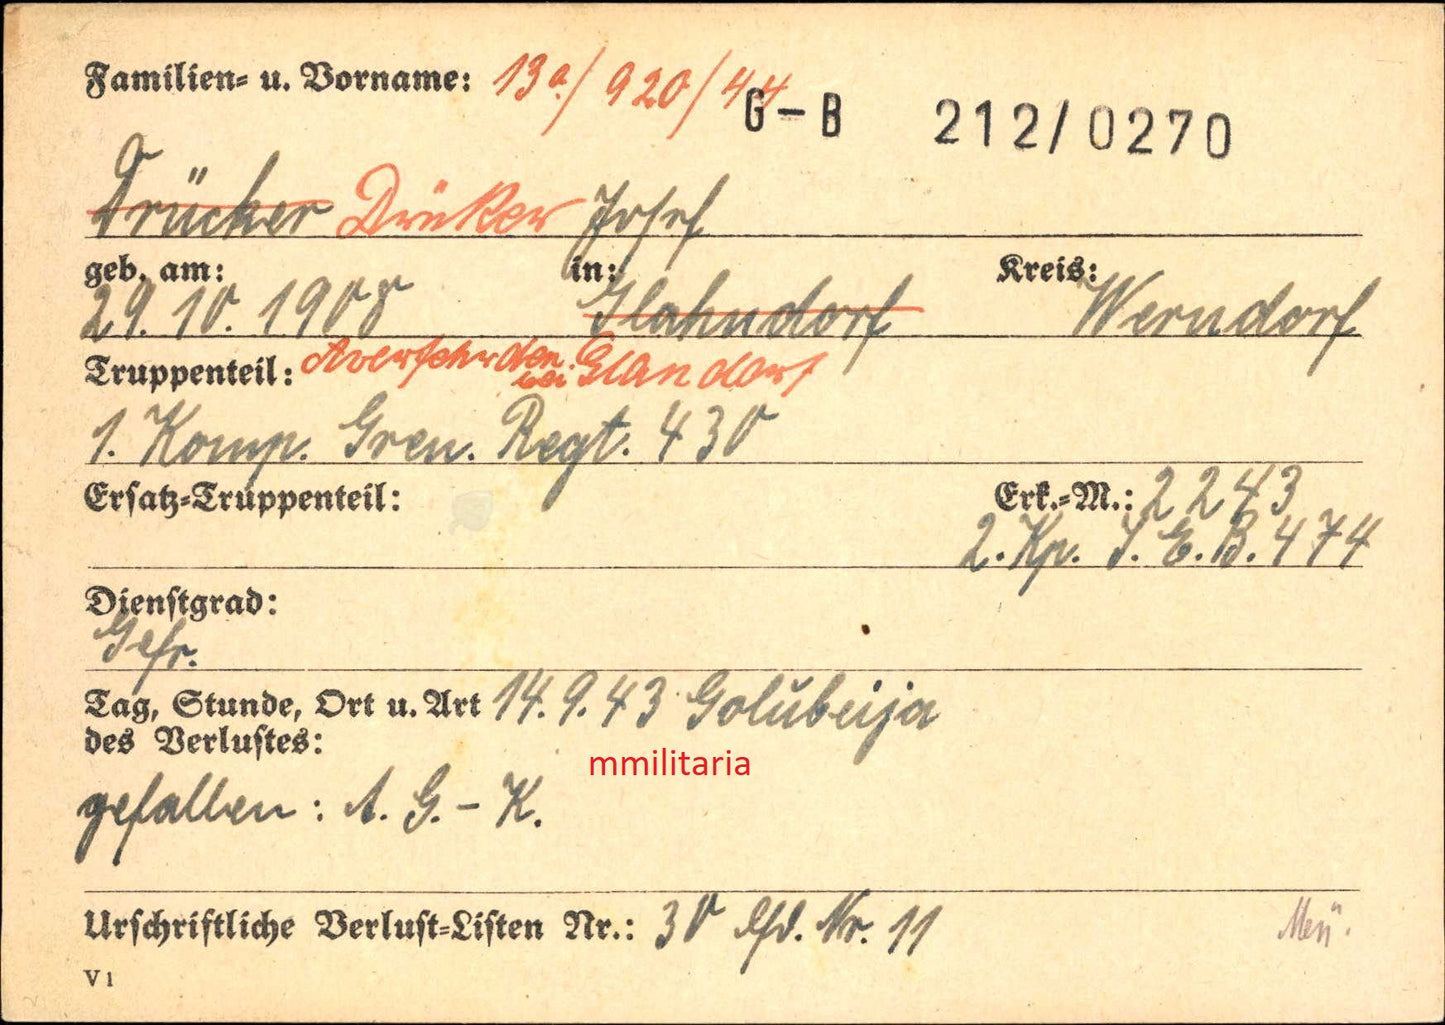 Familien- u. Vorname: 13a/920/44
G-B 212/0270
Drücker Drüker Josef
geb. am: in: Kreis:
29.10.1908 Glahndorf Werndorf
Truppenteil: Averfehrden bei Glandorf
1. Komp. Gren. Regt. 430
Ersatz-Truppenteil: Erk.-M.: 2243
2. Kp. I. E. B. 474
Dienstgrad:
Gefr.
Tag, Stunde, Ort u. Art 14.9.43 Golubeija
des Verlustes:
mmilitaria
gefallen: A. G. - K.
Urschriftliche Verlust-Listen Nr.: 30 lfd. Nr. 11
V 1